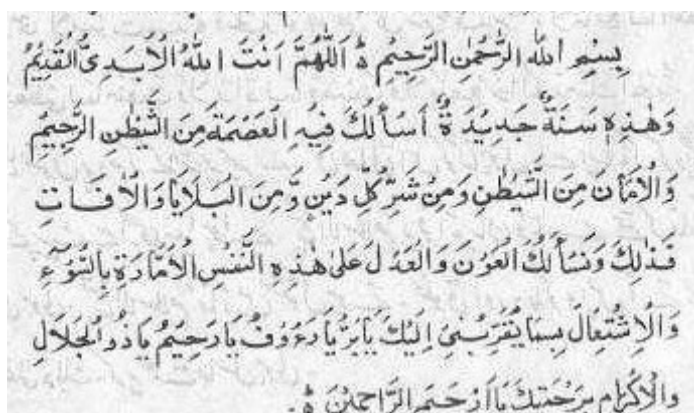 بِسْمِ اللهِ الرَّحْمٰنِ الرَّحِيْمِ ہ اَللّٰهُمَّ اَنْتَ اللهُ الْاَبَدِىُّ الْقَدِيْمُ
وَهٰذِهٖ سَنَةٌ جَدِيْدَةٌ اَسْأَلُكَ فِيْهِ الْعَصْمَةَ مِنَ الشَّيْطٰنِ الرَّجِيْمِ
وَالْاَمَانَ مِنَ الشَّيْطٰنِ وَمِنْ شَرِّ كُلِّ دَيْنٍ وَّمِنَ الْبَلَايَا وَالْاٰفَاتِ
فَذٰلِكَ وَنَسَأَلُكَ الْعَوْنَ وَالْعَدْلَ عَلٰى هٰذِهِ النَّفْسِ الْاَمَّارَةِ بِالسُّوْٓءِ
وَالْاِشْتِعَالَ بِمَا يُقَرِّبُنِىْ اِلَيْكَ يَا بَرُّ يَا رَءُوْفُ يَا رَحِيْمُ يَا ذُو الْجَلَالِ
وَالْاِكْرَامِ بِرَحْمَتِكَ يَا اَرْحَمَ الرَّاحِمِيْنَ ہ